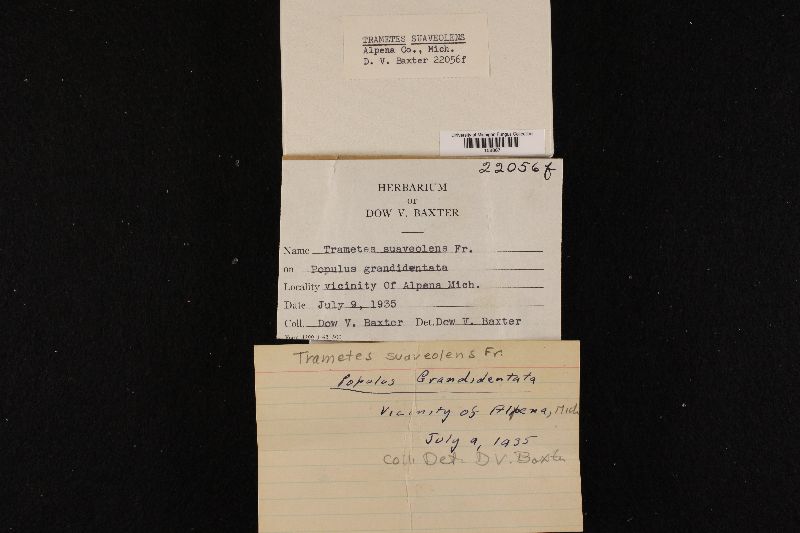 TRAMETES SUAVEOLENS
Alpena Co., Mich.
D. V. Baxter 22056f
University of Michigan Fungus Collection
22056f
HERBARIUM
OF
DOW V. BAXTER
Name Trametes suaveolens Fr.
on Populus grandidentata
Locality vicinity Of Alpena Mich.
Date July 9, 1935
Coll. Dow V. Baxter Det. Dow V. Baxter
Trametes suaveolens Fr.
Populus Grandidentata
Vicinity of Alpena, Mich
July 9, 1935
Coll. Det. D V. Baxter